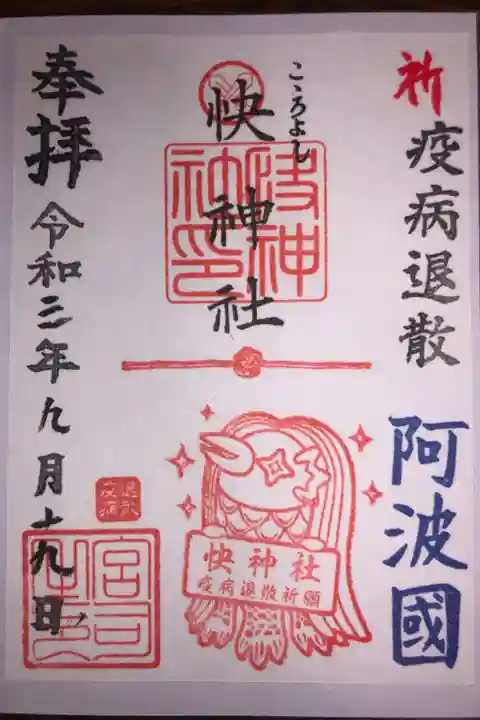 祈疫病退散
阿波國
こころよし
快神社
快神社
疫病退散祈願
奉拝
令和三年九月十九日